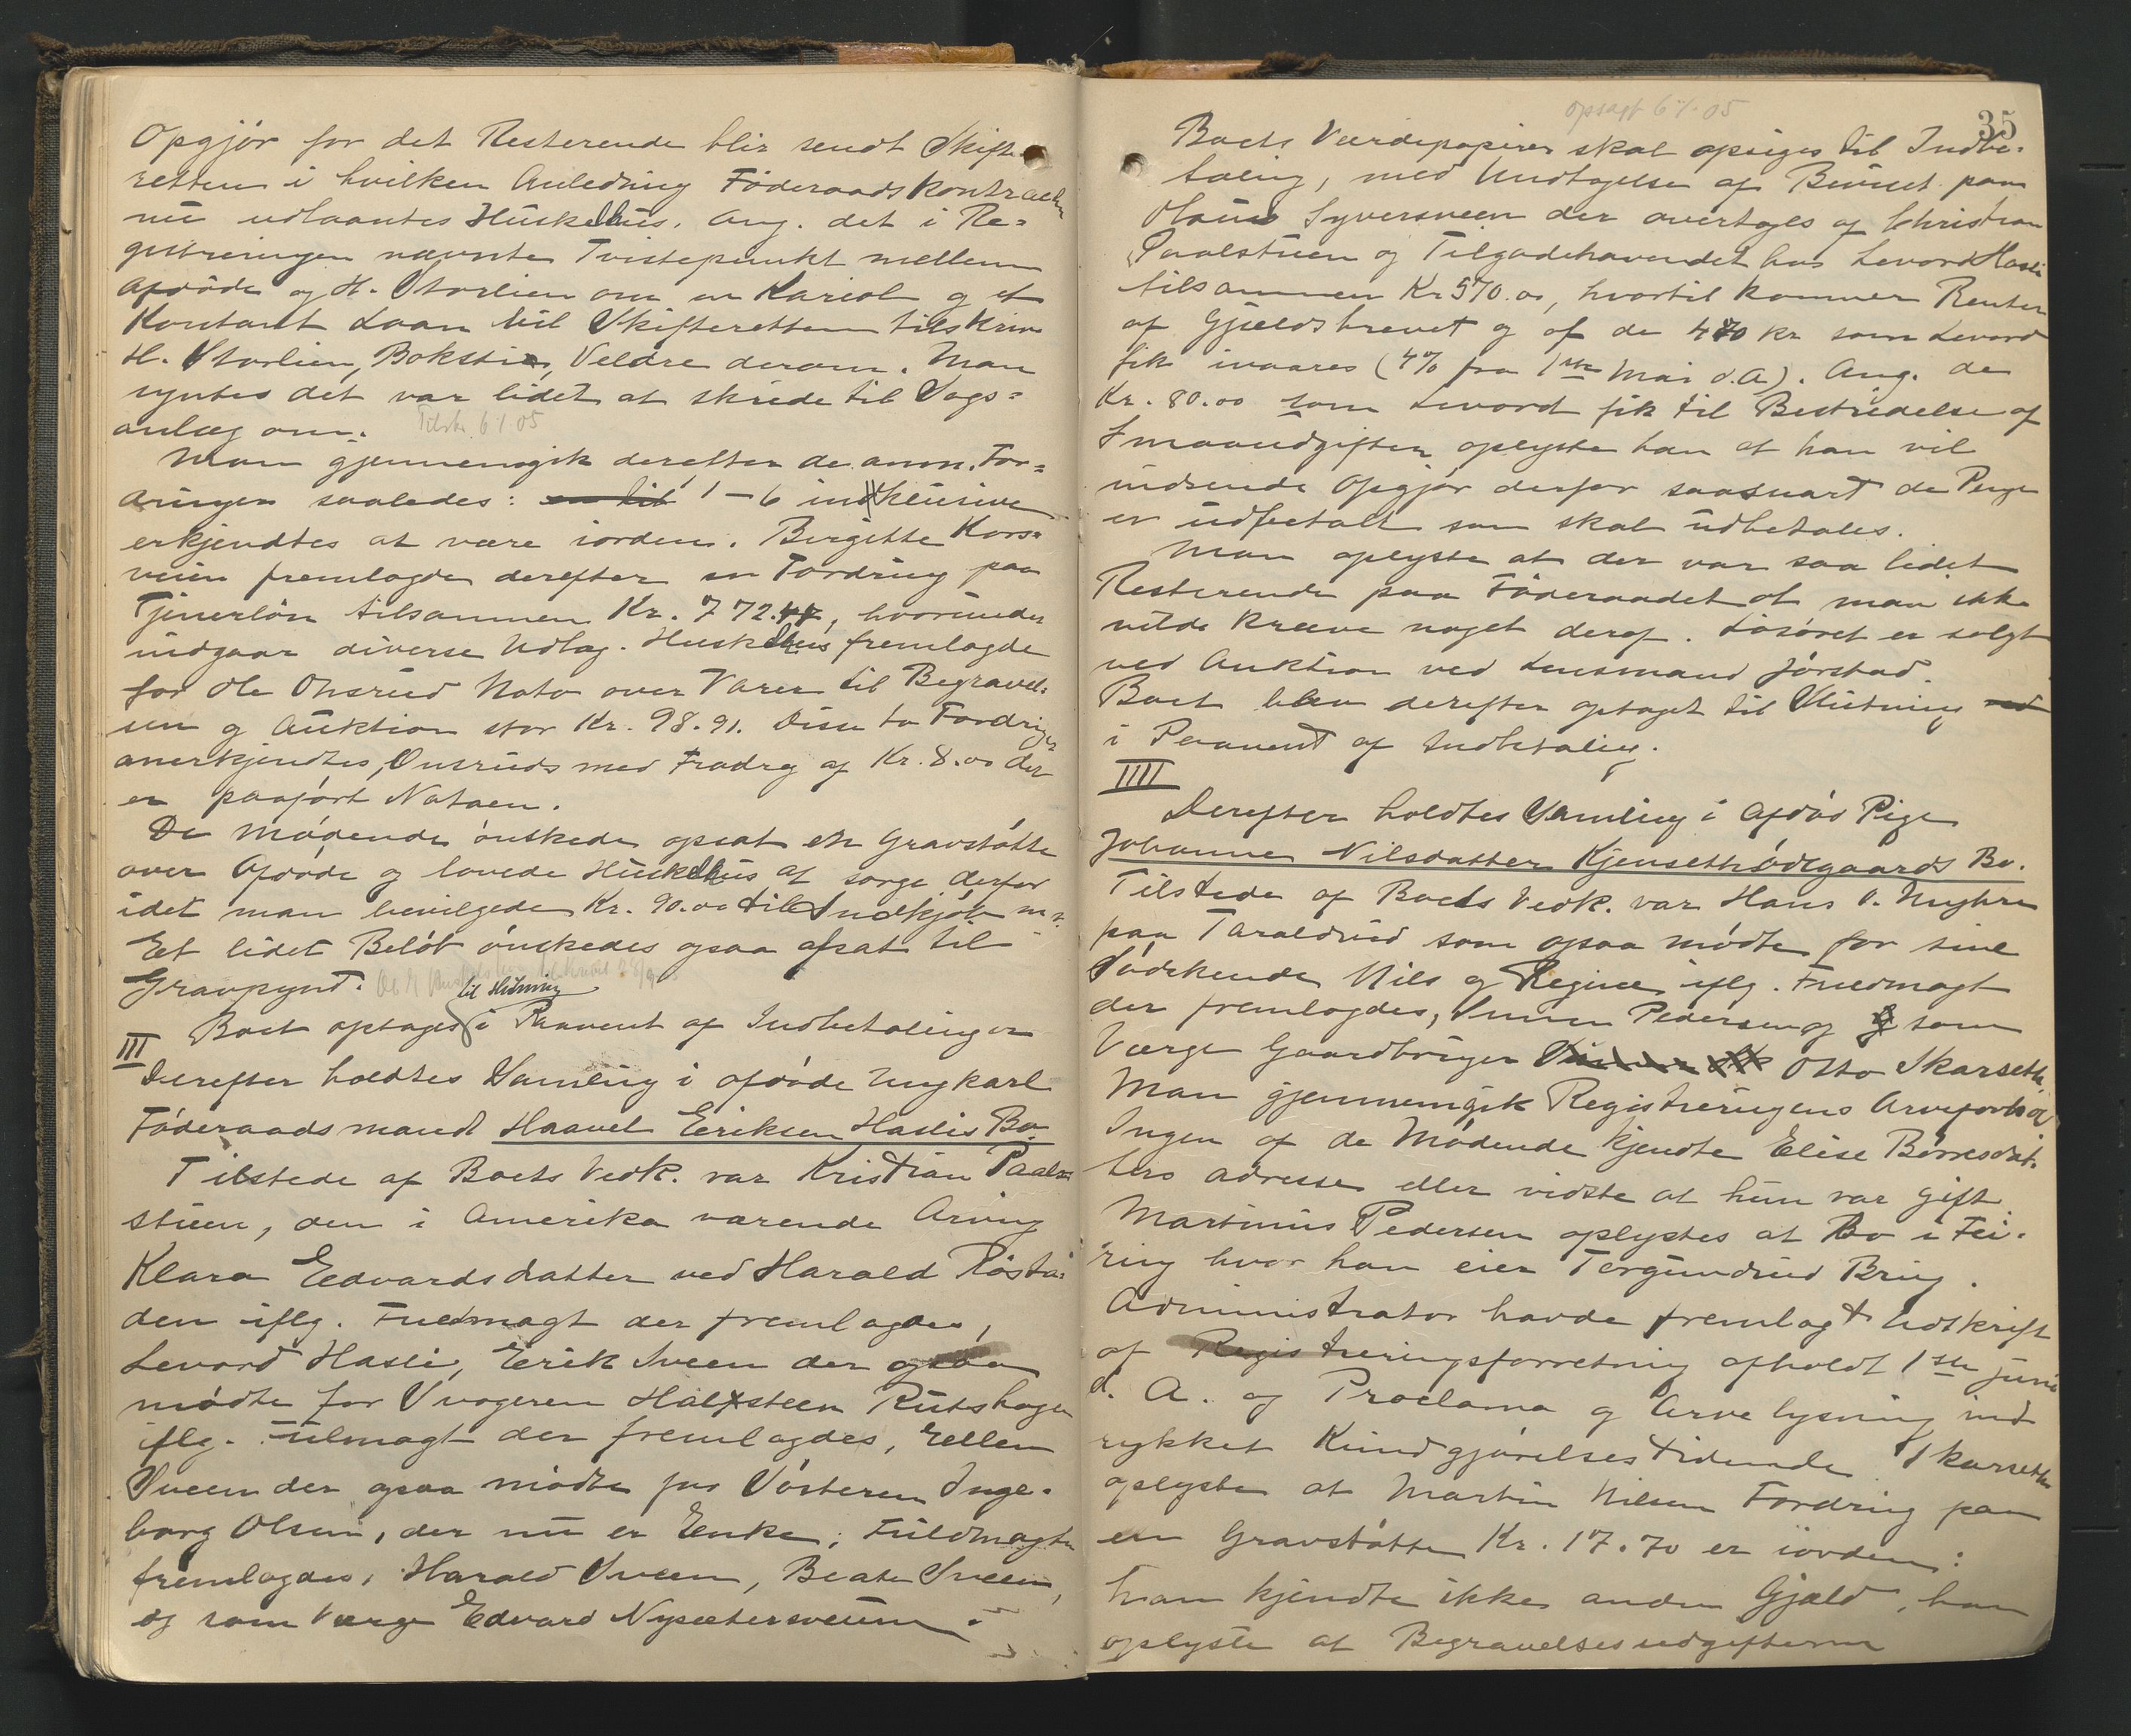 Opgjör for det Resterende blir sendt Skifte-
retten i hvilken Anledning Föderaadskontracten
nu udlaantes Huskelhus. Ang. det i Re=
gistreringen nævnte Tvistepunkt mellem
Afdöde og H. Storlien om en Kariol og et
Kontant Laan vil Skifteretten tilskrive
H. Storlien, Bokstie, Veldre derom. Man
syntes det var lidet at skride til Sags=
anlæg om. Tilskr. 6/1.05
Man gjennemgik derefter de anm. For=
dringer saaledes: 1-6 indklusive
erkjendtes at være iorden. Birgitte Kors=
veien fremlagde derefter en Fordring paa
Tjenerlön tilsammen Kr. 772.47, hvorunder
indgaar diverse Udlæg. Huskelhus fremlagde
for Ole Onsrud Nota over Varer til Begravel=
sen og Auktion stor Kr. 98.91. Disse to Fordringer
anerkjendtes, Onsruds med Fradrag af Kr. 8.00 der
er paaført Notaen.
De Mødende önskede opsat en Gravstötte
over Afdöde og lovede Huskelhus at sørge derfor
idet man bevilgede Kr. 90.00 til Indkjöb m.v.
Eet lidet Beløb önskedes ogsaa afsat til
Gravpynt.
Boet optages til Slutning i Paavent af Indbetalinger
III
Derefter holdtes Samling i afdöde Ungkarl
Föderaadsmand Haavel Eriksen Haslis Bo.
Tilstede af Boets Vedk. var Kristian Paal=
stuen, den i Amerika værende Arving
Klara Edvardsdatter ved Harald Rösta=
den iflg. Fuldmagt der fremlagdes,
Levord Hasli, Erik Sveen der ogsaa
mødte for Svogeren Halfsteen Rutshagen
iflg. Fulmagt der fremlagdes, Ellen
Sveen der ogsaa mødte for Söstere Inge=
borg Olsen, der nu er Enke; Fuldmagten
fremlagdes, Harald Sveen, Beate Sveen,
og som Værge Edvard Nysætersveen.
Opsagt 6/1.05
35
Boets Værdipapirer skal opsiges til Indbe-
taling, med Undtagelse af Beviset paa
Olaus Syversveen der overtages af Christian
Paalstuen og Tilgodehavendet hos Levord Hasli
tilsammen Kr 570.00, hvortil kommer Renter
af Gjældsbrevet og af de 470 kr som Levord
fik ivaares (4% fra 1ste Mai d.A). Ang. de
Kr. 80.00 som Levord fik til Bestridelse af
Smaaudgifter oplyste han at han vil
indsende Opgjör derfor saasnart de Penge
er udbetalt som skal udbetales.
Man oplyste at der var saa lidet
Resterende paa Föderaadet at man ikke
vilde kræve noget deraf. Lösöret er solgt
ved Auktion ved Lensmand Jörstad.
Boet blev derefter optaget til Slutning
i Paavent af Indbetaling.
IIII
Derefter holdtes Samling i Afdøde Pige
Johanne Nilsdatter Kjensethødegaards Bo.
Tilstede af Boets Vedk. var Hans O. Myhre
paa Taraldrud som ogsaa mødte for sine
Södskende Nils og Regine iflg. Fuldmagt
der fremlagdes, Simen Pedersen og som
Værge Gaardbruger Otto Skarseth.
Man gjennemgik Registreringens Arveforhold
Ingen af de Mødende kjendte Elise Börresdat-
ters adresse eller vidste at hun var gift.
Martinus Pedersen oplystes at Bo i Fei-
ring hvor han eier Torgundrud Brug.
Administrator havde fremlagt Udskrift
af Registreringsforretning afholdt 1ste juni
d. A. og Proclama og Arvelysning ind
rykket Kundgjörelsestidende. Skarseth
oplyste at Martin Nilsen Fordring paa
en Gravstötte Kr. 17.70 er iorden:
han kjendte ikke anden Gjæld, han
oplyste at Begravelsesudgifterne